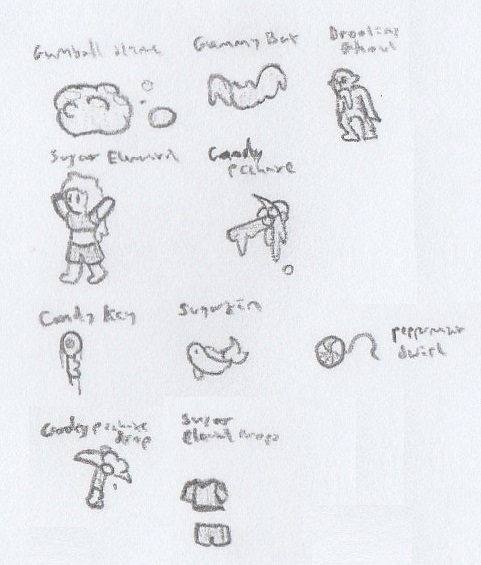 Gumball slime
Gummy Bat
Drooling
Ghoul
Sugar Elemental
Candy
pickaxe
Candy Key
Sugarfin
peppermint
swirl
Candy pickaxe
drop
Sugar
Elemental Drops